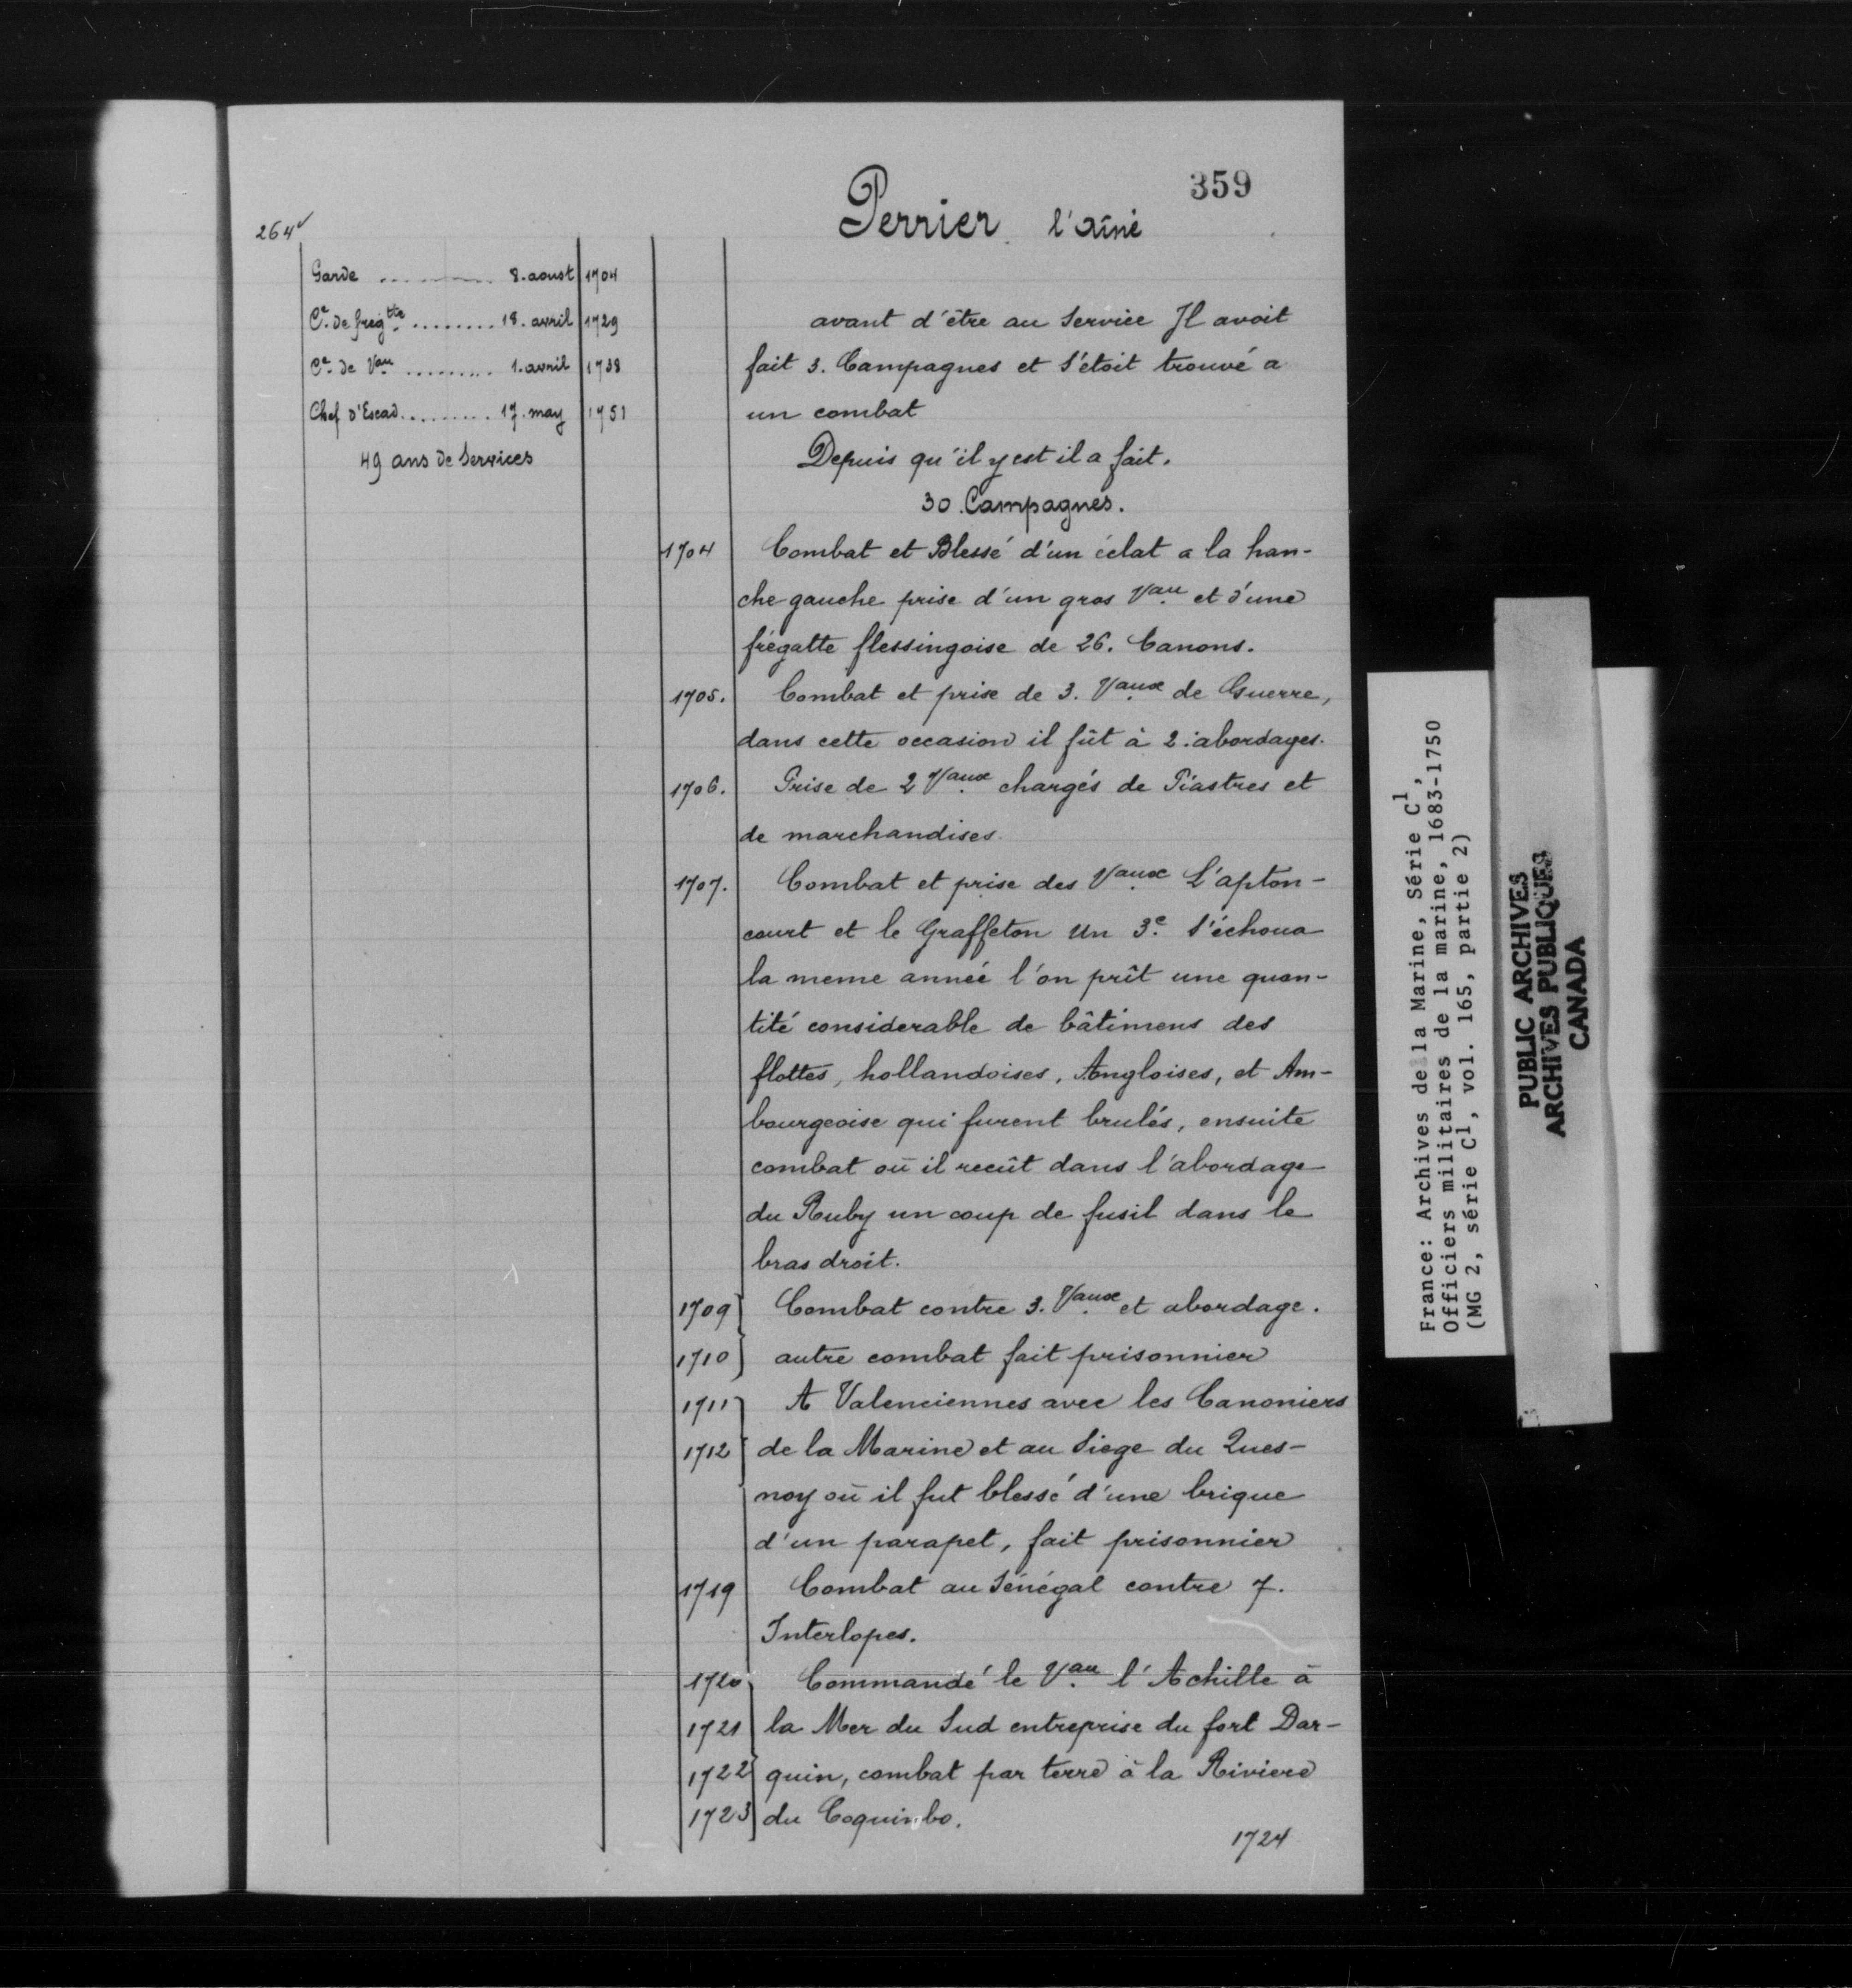 359
Perrier l'Aîné
264v
Garde .......... 8. aoust 1704
Cne de fregtte ........ 18. avril 1729
Cne de Vau ......... 1. avril 1738
Chef d'Escad......... 17. may 1751
49 ans de Services
avant d'être au Service Il avoit
fait 3. Campagnes et s'étoit trouvé a
un combat
Depuis qu'il y est il a fait.
30. Campagnes.
1704 Combat et Blessé d'un éclat a la han-
che gauche prise d'un gros Vau et d'une
frégatte flessingoise de 26. Canons.
1705. Combat et prise de 3. Vaux de Guerre,
dans cette occasion il fût à 2. abordages.
1706. Prise de 2 Vaux chargés de Piastres et
de marchandises.
1707. Combat et prise des Vaux L'apton-
court et le Graffeton Un 3e. s'échoua
la meme année l'on prît une quan-
tité considerable de bâtimens des
flottes, hollandoises, Angloises, et Am-
bourgeoise qui furent brulés, ensuite
combat où il recût dans l'abordage
du Ruby un coup de fusil dans le
bras droit.
1709 Combat contre 3. Vaux et abordage.
1710 autre combat fait prisonnier
1711 A Valenciennes avec les Canoniers
1712 de la Marine et au Siege du Ques-
noy où il fut blessé d'une brique
d'un parapet, fait prisonnier
1719 Combat au Sénégal contre 7.
Interlopes.
1720 Commandé le Vau l'Achille à
1721 la Mer du Sud entreprise du fort Dar-
1722 quin, combat par terre à la Riviere
1723 du Coquimbo.
1724
France: Archives de la Marine, Série C1,
Officiers militaires de la marine, 1683-1750
(MG 2, série C1, vol. 165, partie 2)
PUBLIC ARCHIVES
ARCHIVES PUBLIQUES
CANADA